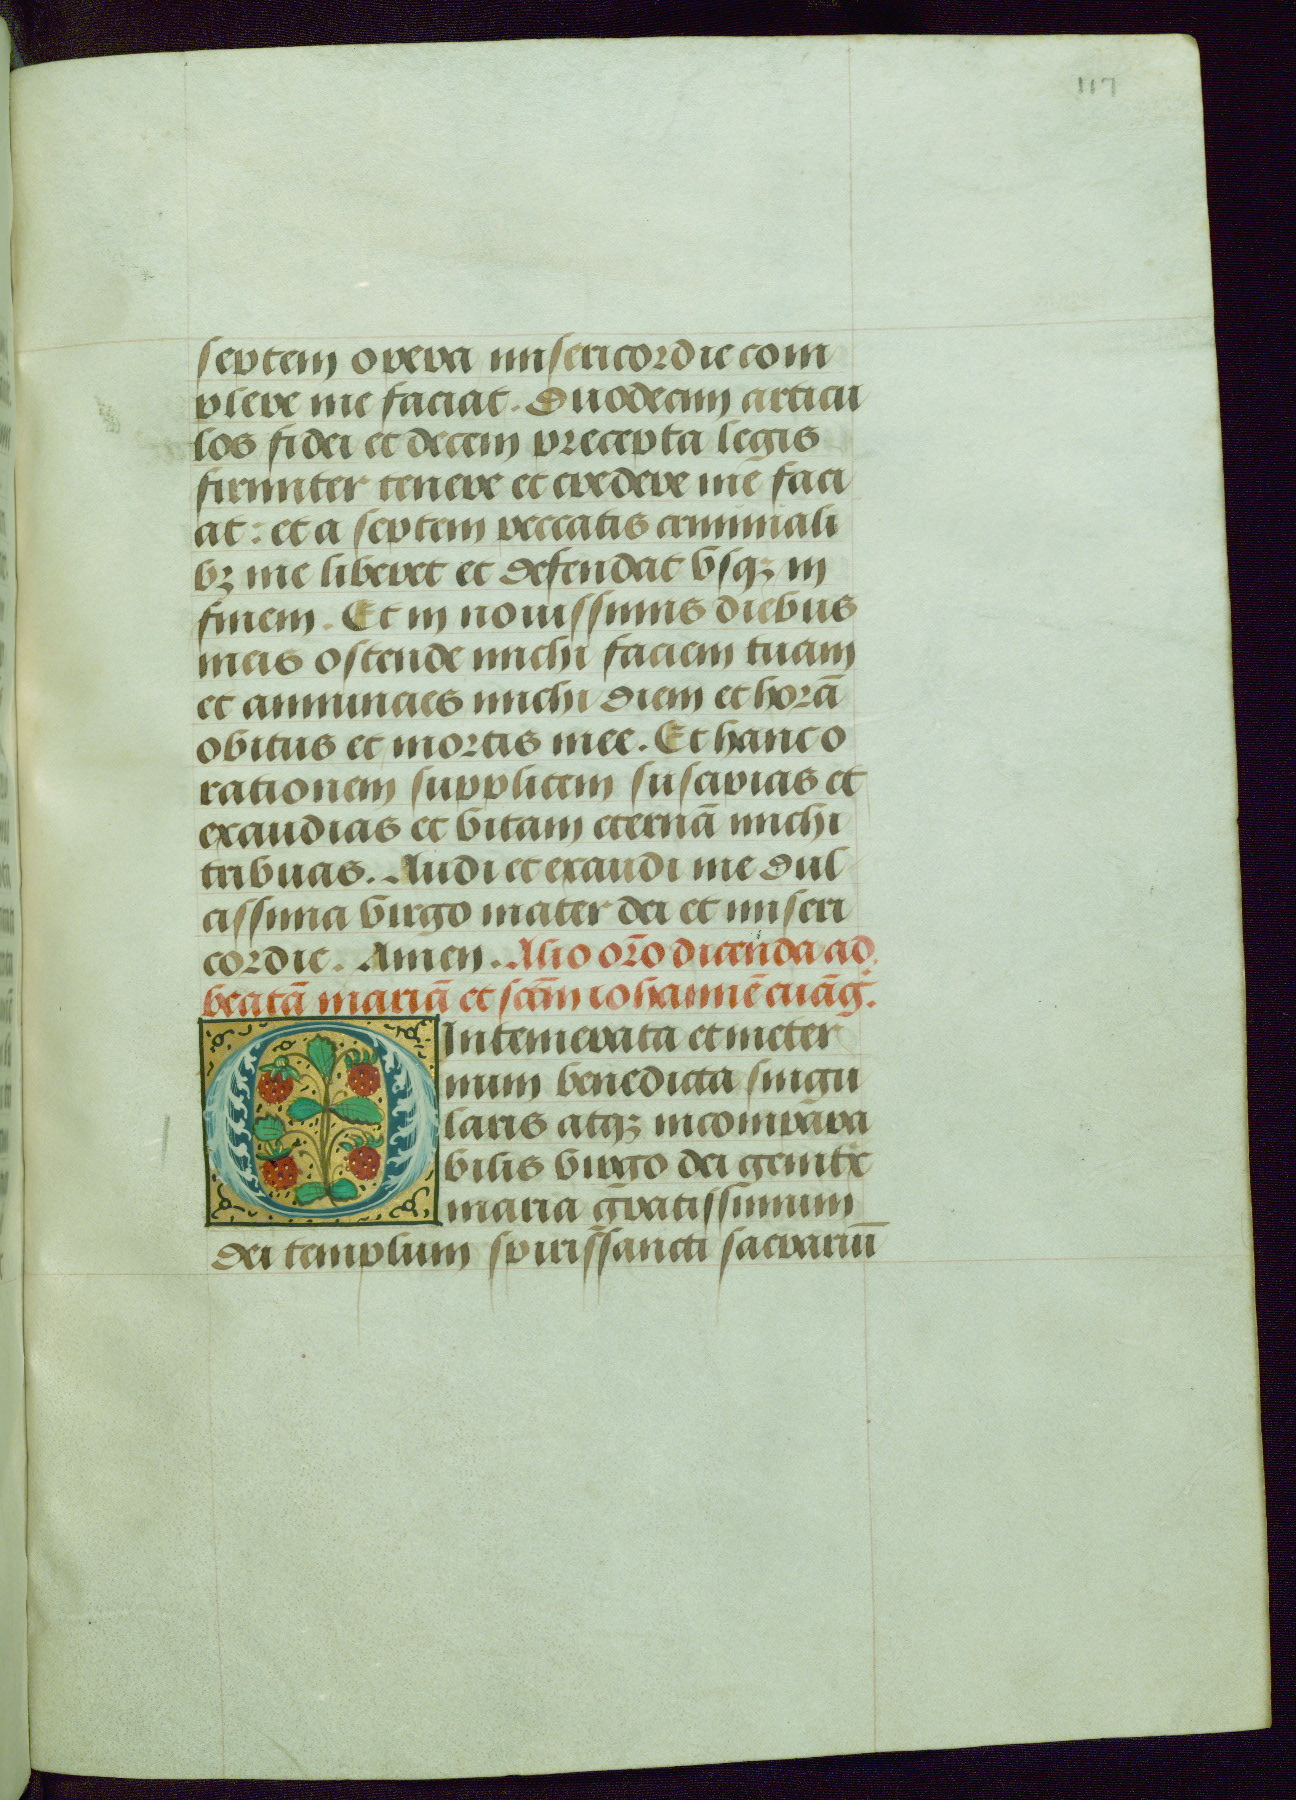 117
septem opera misericordie com
plere me faciat. Duodecim articu
los fidei et decem precepta legis
firmiter tenere et credere mē faci
at: et a septem peccatis criminali
bꝫ me liberet et defendat vsqꝫ in
finem. Et in nouissimis diebus
meis ostende michi faciem tuam
et annuncies michi diem et horā
obitus et mortis mee. Et hanc o
rationem supplicem suscipias et
exaudias et vitam eternā michi
tribuas. Audi et exaudi me dul
cissima virgo mater dei et miseri
cordie. Amen. Alio orō dicenda ad
beatā mariā et scām iohannē euāg.
O Intemerata etineter
num benedicta singu
laris atqꝫ incompara
bilis virgo dei genitx
maria gratissimum
dei templum spirissancti sacrariū